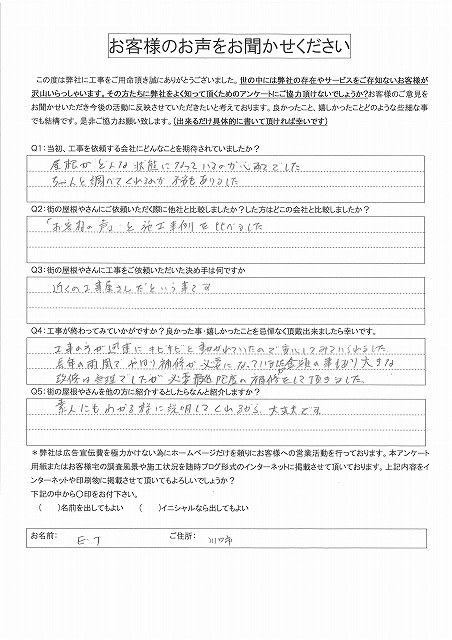 お客様のお声をお聞かせください
この度は弊社に工事をご用命頂き誠にありがとうございました。世の中には弊社の存在やサービスをご存知ないお客様が
沢山いらっしゃいます。その方たちに弊社をよく知って頂くためのアンケートにご協力頂けないでしょうか?お客様のご意見を
お聞かせいただき今後の活動に反映させていただきたいと考えております。良かったこと、嬉しかったことどのような些細な事
でも結構です。是非ご協力お願い致します。(出来るだけ具体的に書いて頂ければ幸いです)
Q1:当初、工事を依頼する会社にどんなことを期待されていましたか?
屋根がどんな状態になっているのか心配でした
ちゃんと調べてくれるのか不安もありました
Q2:街の屋根やさんにご依頼いただく際に他社と比較しましたか?した方はどこの会社と比較しましたか?
「お客様の声」と施工事例を比べました
Q3:街の屋根やさんに工事をご依頼いただいた決め手は何ですか
近くの工事屋さんだという事です
Q4:工事が終わってみていかがですか?良かった事・嬉しかったことを忌憚なく頂戴出来ましたら幸いです。
工事の方が迅速にキビキビと動かれていたので安心してみていられました
長年の雨風で やはり補修が必要になっていた
大きな
改修は無理でしたが 必要最低限度の補修をして頂きました
Q5:街の屋根やさんを他の方に紹介するとしたらなんと紹介しますか?
素人にもわかる様に説明してくれるから、大丈夫です
*弊社は広告宣伝費を極力かけない為にホームページだけを頼りにお客様への営業活動を行っております。本アンケート
用紙またはお客様宅の調査風景や施工状況を随時ブログ形式のインターネットに掲載させて頂いております。上記内容をイ
ンターネットや印刷物に掲載させて頂いてもよろしいでしょうか?
下記の中から〇印をお付下さい。
( )名前を出してもよい ( )イニシャルなら出してもよい
お名前: E.T ご住所: 川口市